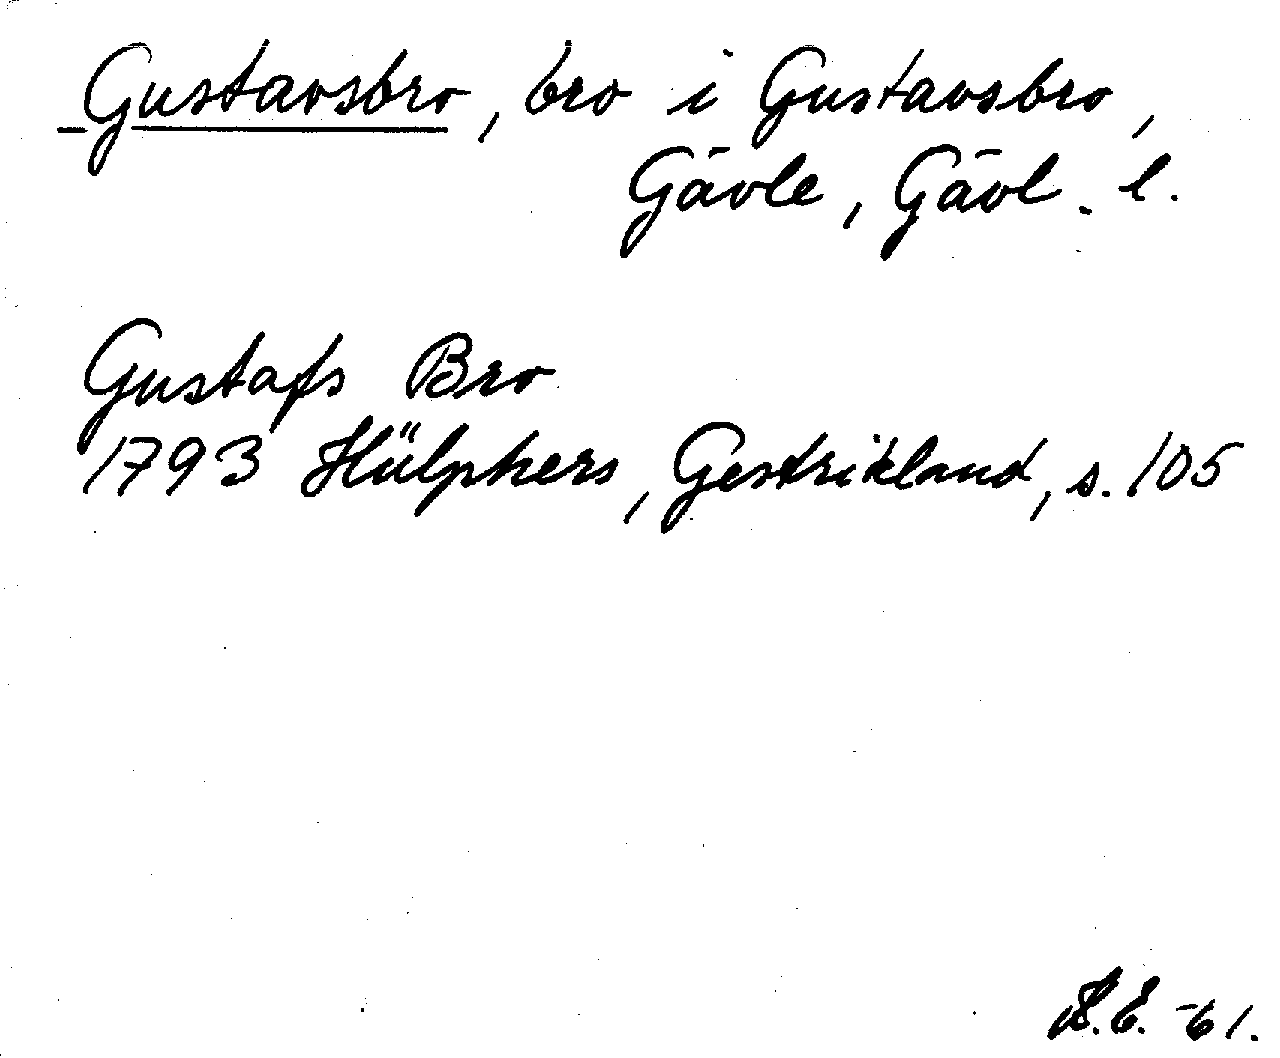 Gustavsbro, bro i Gustavsbro,
Gävle, Gävl. l.
Gustafs Bro
1793 Hülphers, Gestrikland, s. 105
E. -61.